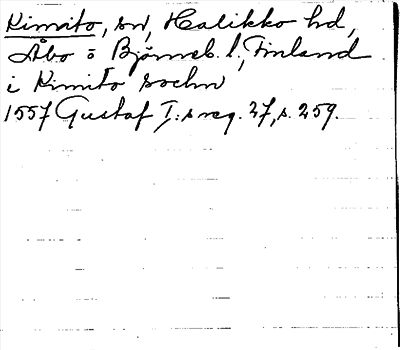 Kimito, sn, Halikko hd,
Åbo o Björneb. l., Finland
i Kimito socken
1557 Gustaf I:s reg. 27, s. 259.